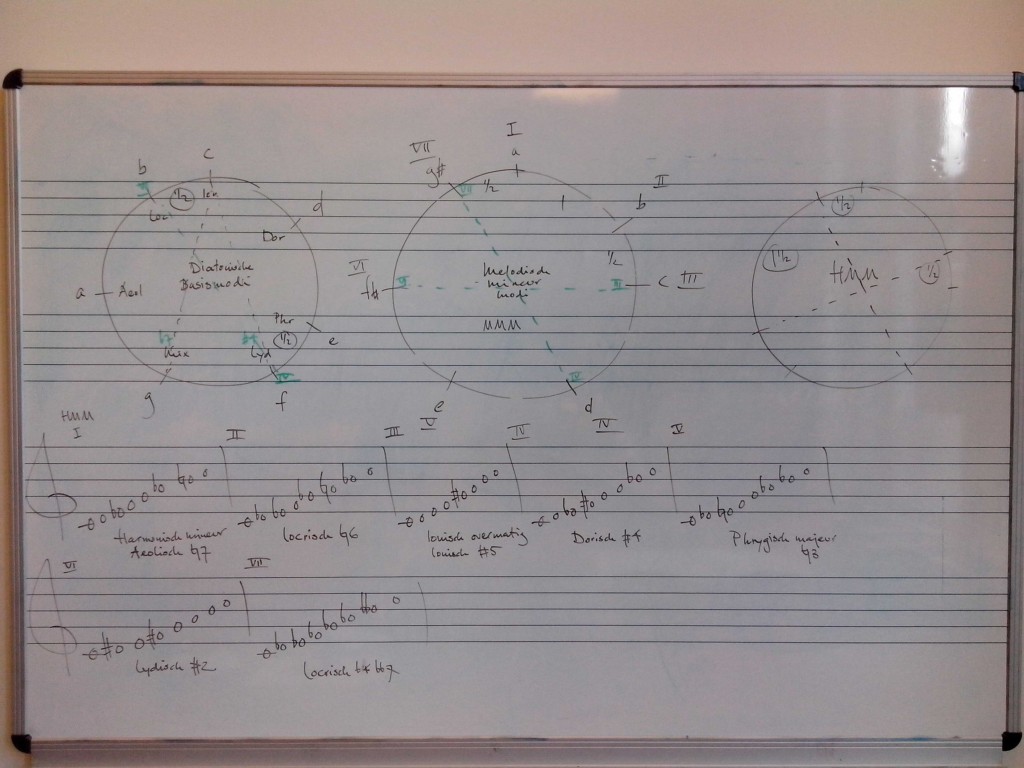 c
b
d
½
Ion
Loc
Dor
Diatonische
Basismodi
a
Aeol
Phr
½
e
Mix
Lyd
IV
g
f
I
a
VII
g#
VII
½
II
b
½
VI
f#
Melodisch
mineur
modi
III
c III
MMM
IV
e
V
d
IV
½
1½
HMM
½
HMM
I
II
III
IV
V
Harmonisch mineur
Aeolisch ♮7
Locrisch ♮6
Ionisch overmatig
Ionisch #5
Dorisch #4
Phrygisch majeur
♮3
VI
VII
Lydisch #2
Locrisch b4 bb7